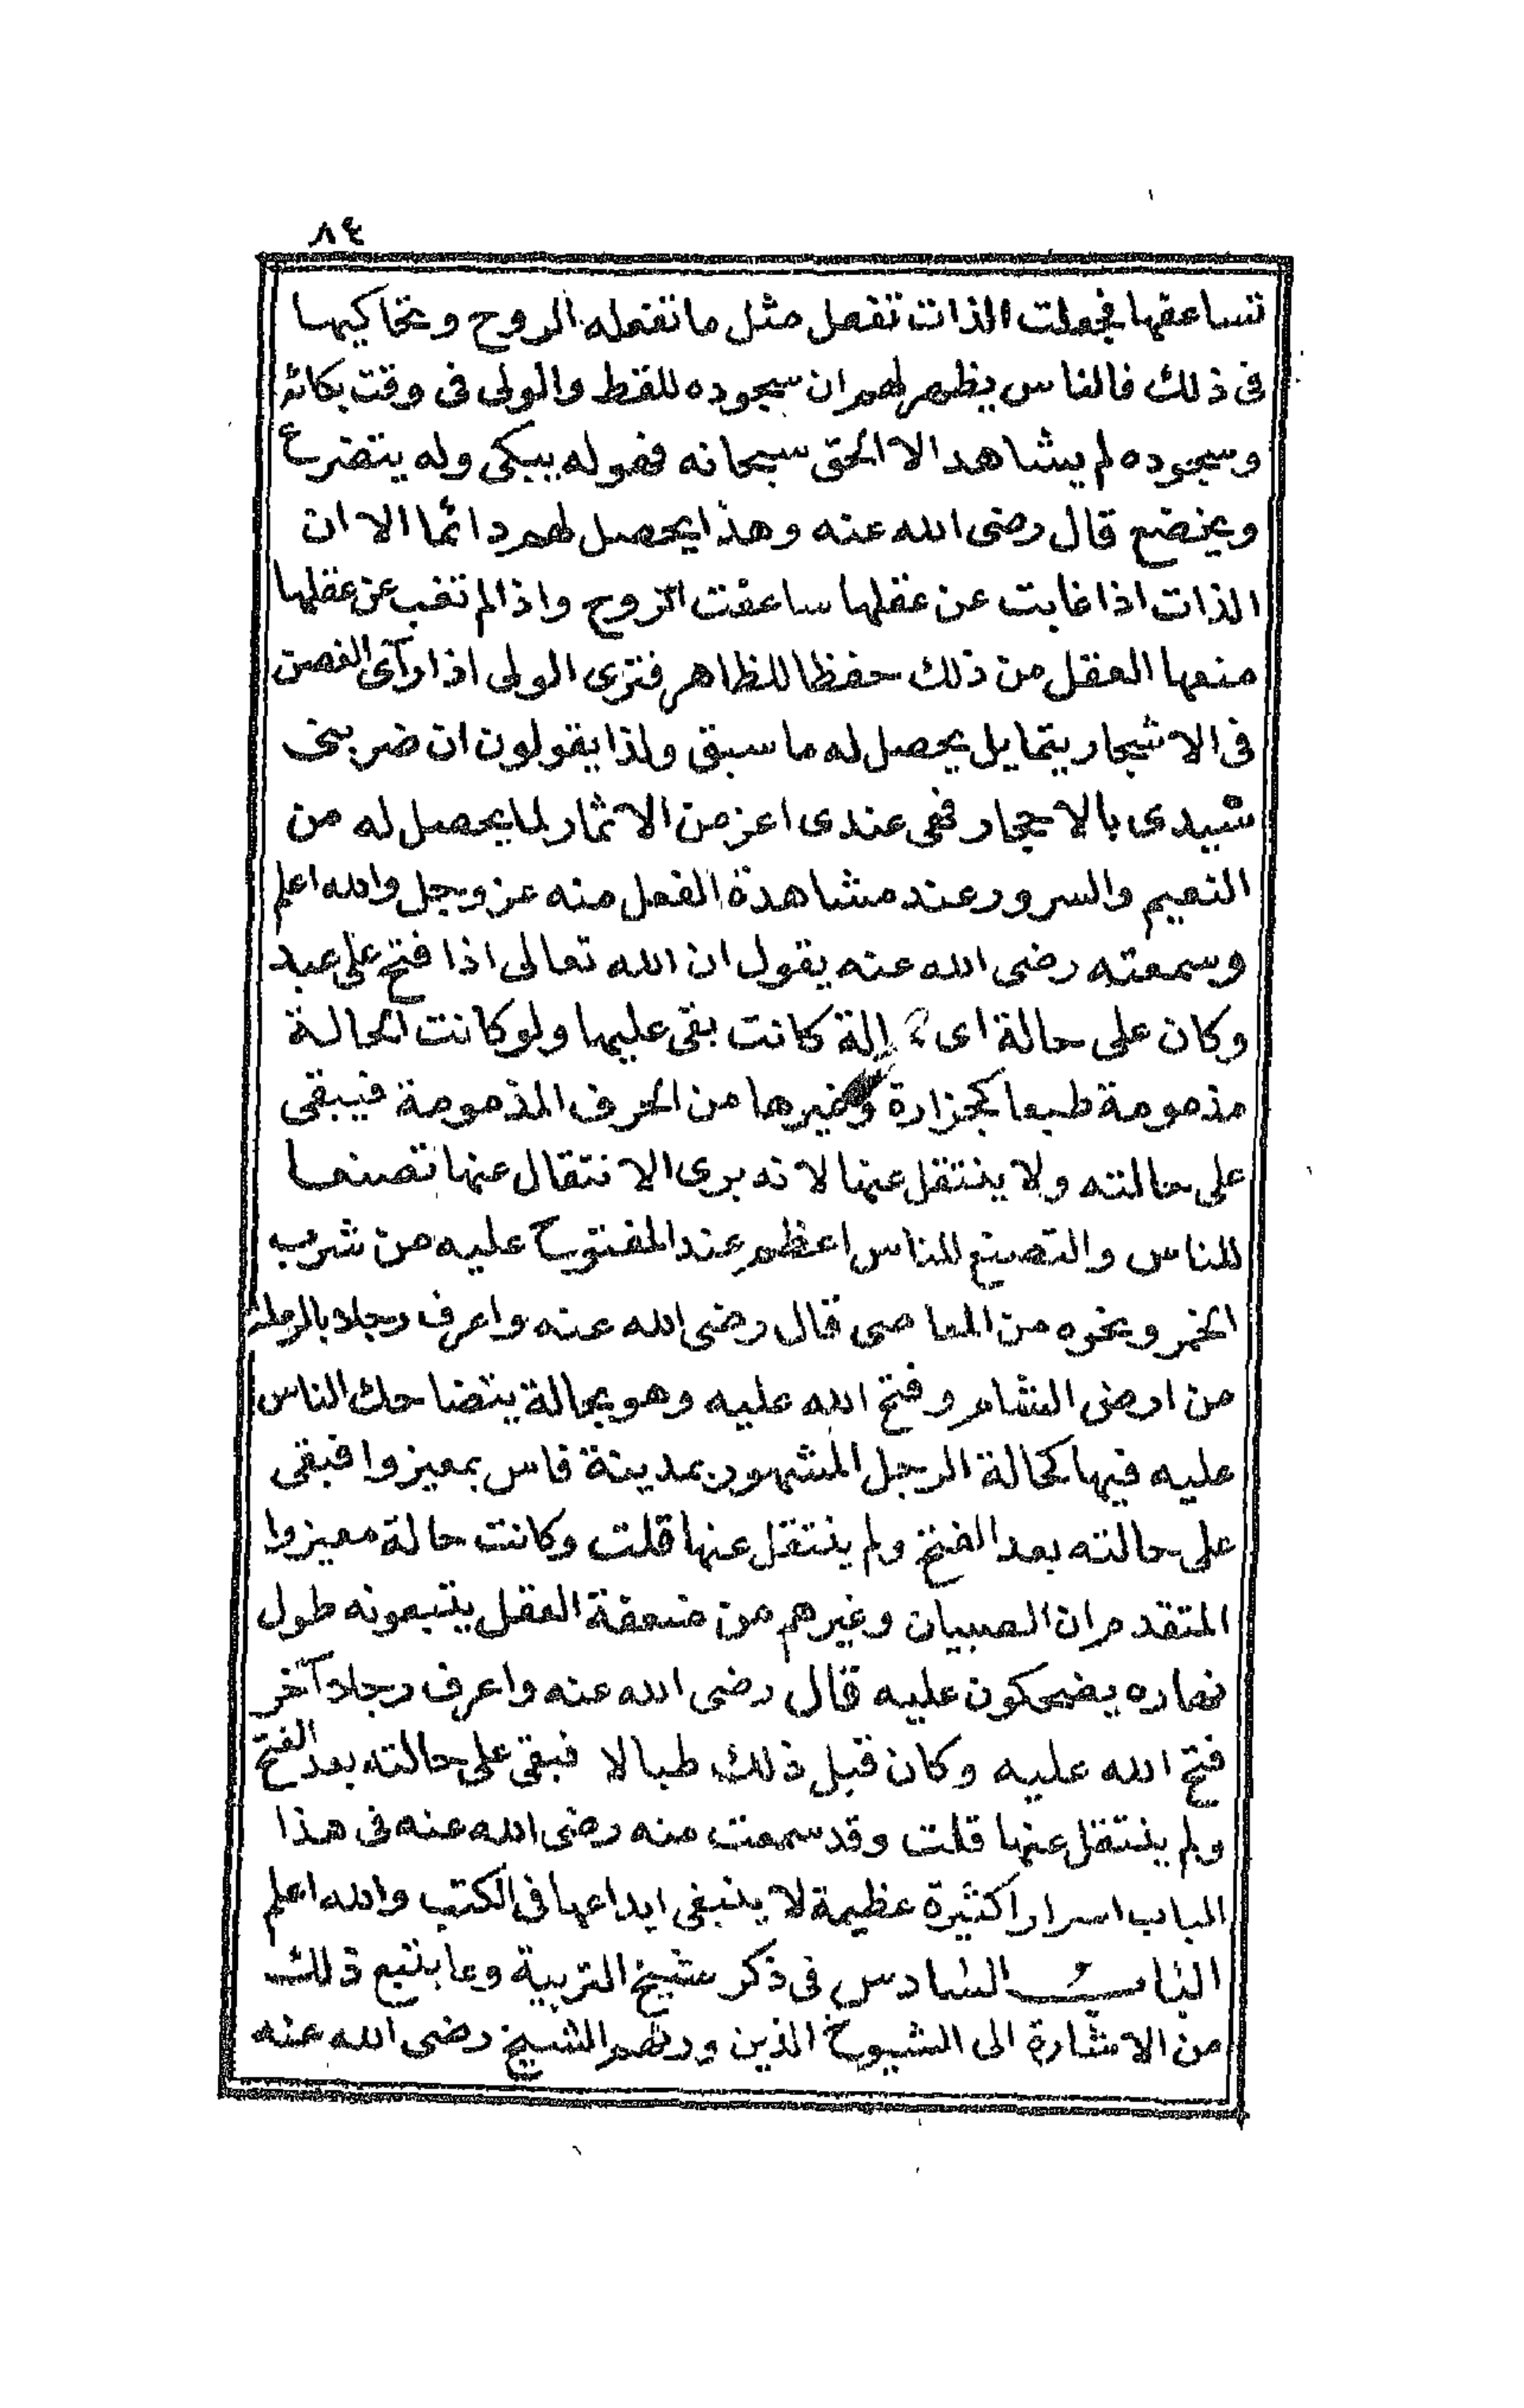 ٨٤
تساعفها فجعلت الذات تفعل مثل ما تفعله الروح وتحاكيها
فى ذلك فالناس يظهر لهم ان سجوده للقط والولى فى وقت بكائه
وسجوده لم يشاهد الا الحق سبحانه فهو له يبكى وله يتضرع
ويخضع قال رضى الله عنه وهذا يحصل لهم دائما الا ان
الذات اذا غابت عن عقلها ساعفت الروح واذا لم تغب عن عقلها
منعها العقل من ذلك حفظا للظاهر فترى الولى اذا رآى الغصن
فى الاشجار يتمايل يحصل له ما سبق ولذا يقولون ان ضربنى
سيدى بالاحجار فهى عندى اعز من الاثمار لما يحصل له من
النعيم والسرور عند مشاهدة الفعل منه عز وجل والله اعلم
وسمعته رضى الله عنه يقول ان الله تعالى اذا فتح على عبد
وكان على حالة اى حالة كانت بقى عليها ولو كانت الحالة
مذمومة طبعا كجزارة وغيرها من الحرف المذمومة فيبقى
على حالته ولا ينتقل عنها لانه يرى الانتقال عنها تصنعا
للناس والتصنع للناس اعظم عند المفتوح عليه من شرب
الخمر ونحوه من المعاصى قال رضى الله عنه واعرف رجلا بالرملة
من ارض الشام وفتح الله عليه وهو بحالة يتضاحك الناس
عليه فيها كحالة الرجل المشهور بمدينة فاس بمعيزوا فبقى
على حالته بعد الفتح ولم ينتقل عنها قلت وكانت حالة معيزوا
المتقدم ان الصبيان وغيرهم من ضعفة العقل يتبعونه طول
نهاره يضحكون عليه قال رضى الله عنه واعرف رجلا آخر
فتح الله عليه وكان قبل ذلك طبالا فبقى على حالته بعد الفتح
ولم ينتقل عنها قلت وقد سمعت منه رضى الله عنه فى هذا
الباب اسرارا كثيرة عظيمة لا ينبغى ايداعها فى الكتب والله اعلم
الباب السادس فى ذكر شيخ التربية وما يتبع ذلك
من الاشارة الى الشيوخ الذين ورثهم الشيخ رضى الله عنه